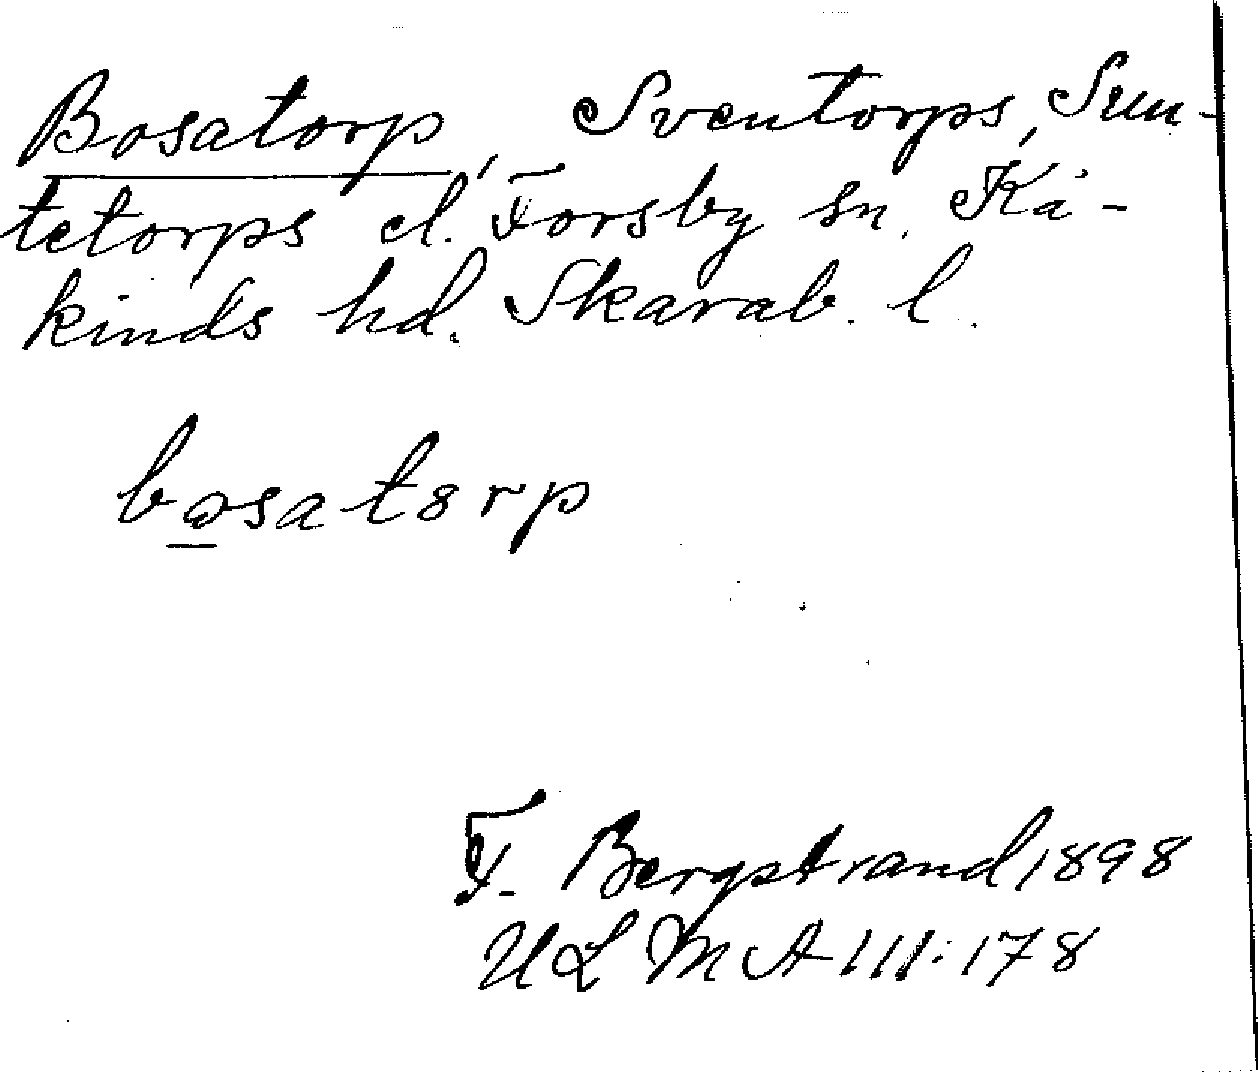 Bosatorp, Sventorps, Sun-
tetorps el. Forsby sn. Kå-
kinds hd. Skarab. l.
bɷsatȣrp
F. Bergstrand 1898
ULMA 111:178